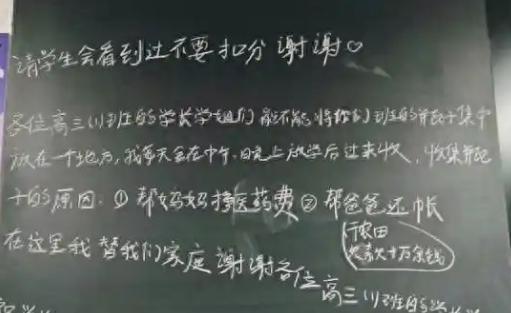 请学生会看到过不要扣分 谢谢♡
各位高三(1)班的学长学姐们 能不能将你们班的瓶子集中
放在一个地方,我每天会在中午、晚上放学后过来收,收集瓶
子的原因:①帮妈妈挣医药费②帮爸爸还帐
行农田
欠款六十万余钱
在这里我 替我们家庭 谢谢各位高三(1)班的学长学